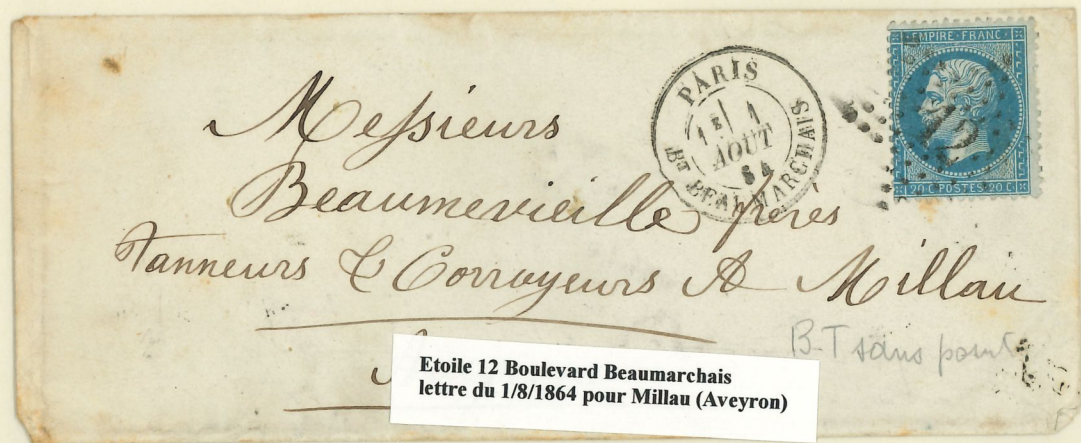 Messieurs
Beaumevieille frères
Tanneurs & Corroyeurs A Millau
PARIS
1E 1
AOUT
64
Bd BEAUMARCHAIS
EMPIRE · FRANC ·
12
20 C POSTES 20 C
B-T sans point
Etoile 12 Boulevard Beaumarchais
lettre du 1/8/1864 pour Millau (Aveyron)